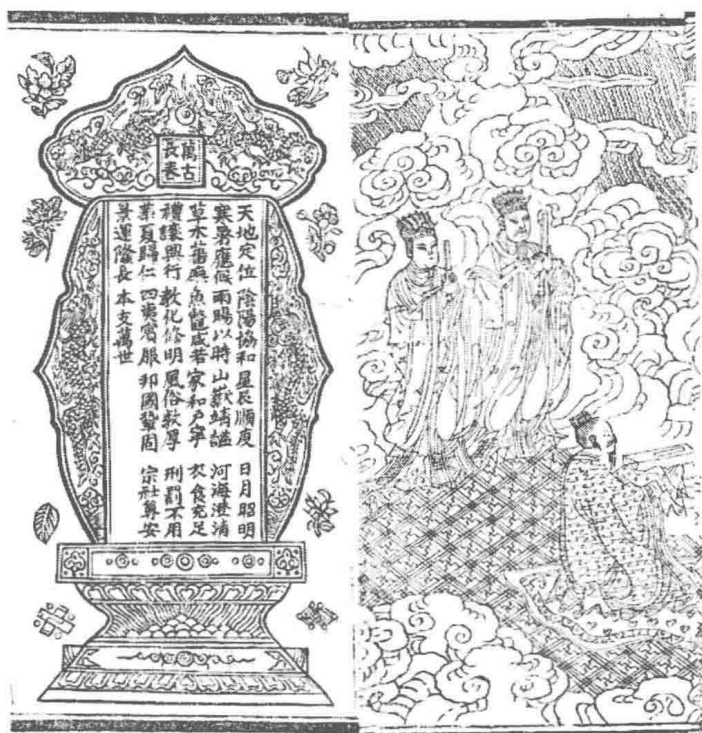 萬古
長春
天地定位 陰陽協和 星辰順度 日月昭明
寒暑應候 雨暘以時 山嶽靖謐 河海澄清
草木蕃廡 魚鼈咸若 家和戶寧 衣食充足
禮讓興行 教化修明 風俗敦厚 刑罰不用
華夏歸仁 四夷賓服 邦國鞏固 宗社尊安
景運隆長 本支萬世